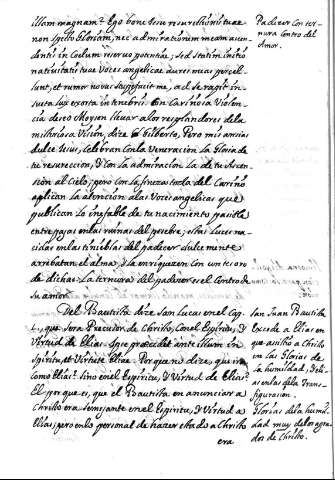 illam magnam? Ego bone Iesu resurrectionis tuae
non expecto Gloriam, nec admirationem meam accen-
dentis in Coelum reservo potentiae; sed statim initio
nativitatis tuae Voces angelicae aures meas percel-
lunt, et rumor novus
sueta lux exorta in tenebris. Con Cariñosa Violen-
cia deseo Moysen llevar a los resplandores de la
milhrosa Visión, dize Gilberto, Pero mis ansias
dulce Iesus, Celebran con la Veneracion la Gloria de
tu resureccion, y con la admiracion la de tu Ascen-
sion al Cielo; pero con la fineza toda del Cariño
aplican la atencion a las Voces angelicas que
publican lo inefable de tu nacimiento
entre pajas en las ruinas del pesebre; estas luces na-
cidas en las tinieblas del padecer dulcemente
arrebatan el alma, y la enriquezen con un tesoro
de dichas. La ternura del padecer es el Centro de
su amor.
Del Bautista dize San Lucas en el Cap.
1., que sera Precursor de Christo, con el Espiritu, y
Virtud de Elias. Ipse praecedet ante illum in
Spiritu, et Virtute Eliae. Porque no dize, que ira
como Elias? Sino en el Espiritu, y Virtud de Elias?
El porque es, que el Bautista en anunciar a
Christo era semejante en el Espiritu, y Virtud a
Elias, pero en lo personal de hazer estado a Christo
era
Padecer con ter-
nura Centro del
Amor.
San Juan Bautista
Excede a Elias en
que asistio a Christo
en las Glorias de
la humildad, y Eli-
as en las de la Trans-
figuracion.
Glorias de la humil-
dad muy del agra-
do de Christo.